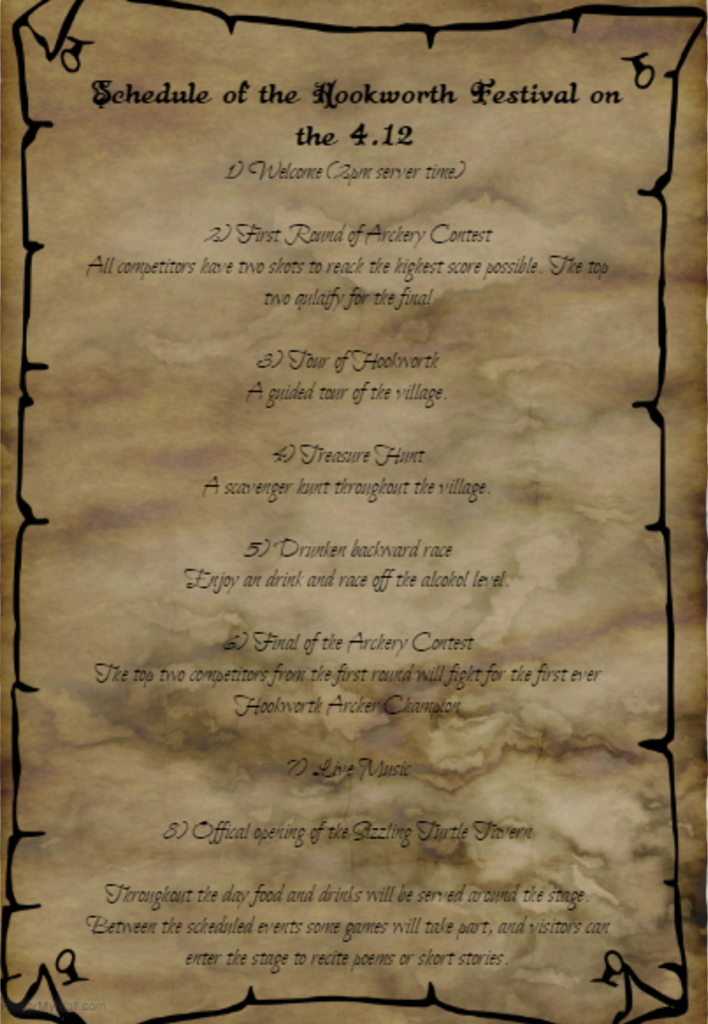 Schedule of the Hookworth Festival on
the 4.12
1) Welcome (2pm server time)
2) First Round of Archery Contest
All competitors have two shots to reach the highest score possible. The top
two qulaify for the final
3) Tour of Hookworth
A guided tour of the village.
4) Treasure Hunt
A scavenger hunt throughout the village.
5) Drunken backward race
Enjoy an drink and race off the alcohol level.
6) Final of the Archery Contest
The top two competitors from the first round will fight for the first ever
Hookworth Archer Champion
7) Live Music
8) Offical opening of the Sizzling Turtle Tavern
Throughout the day food and drinks will be served around the stage.
Between the scheduled events some games will take part, and visitors can
enter the stage to recite poems or short stories.